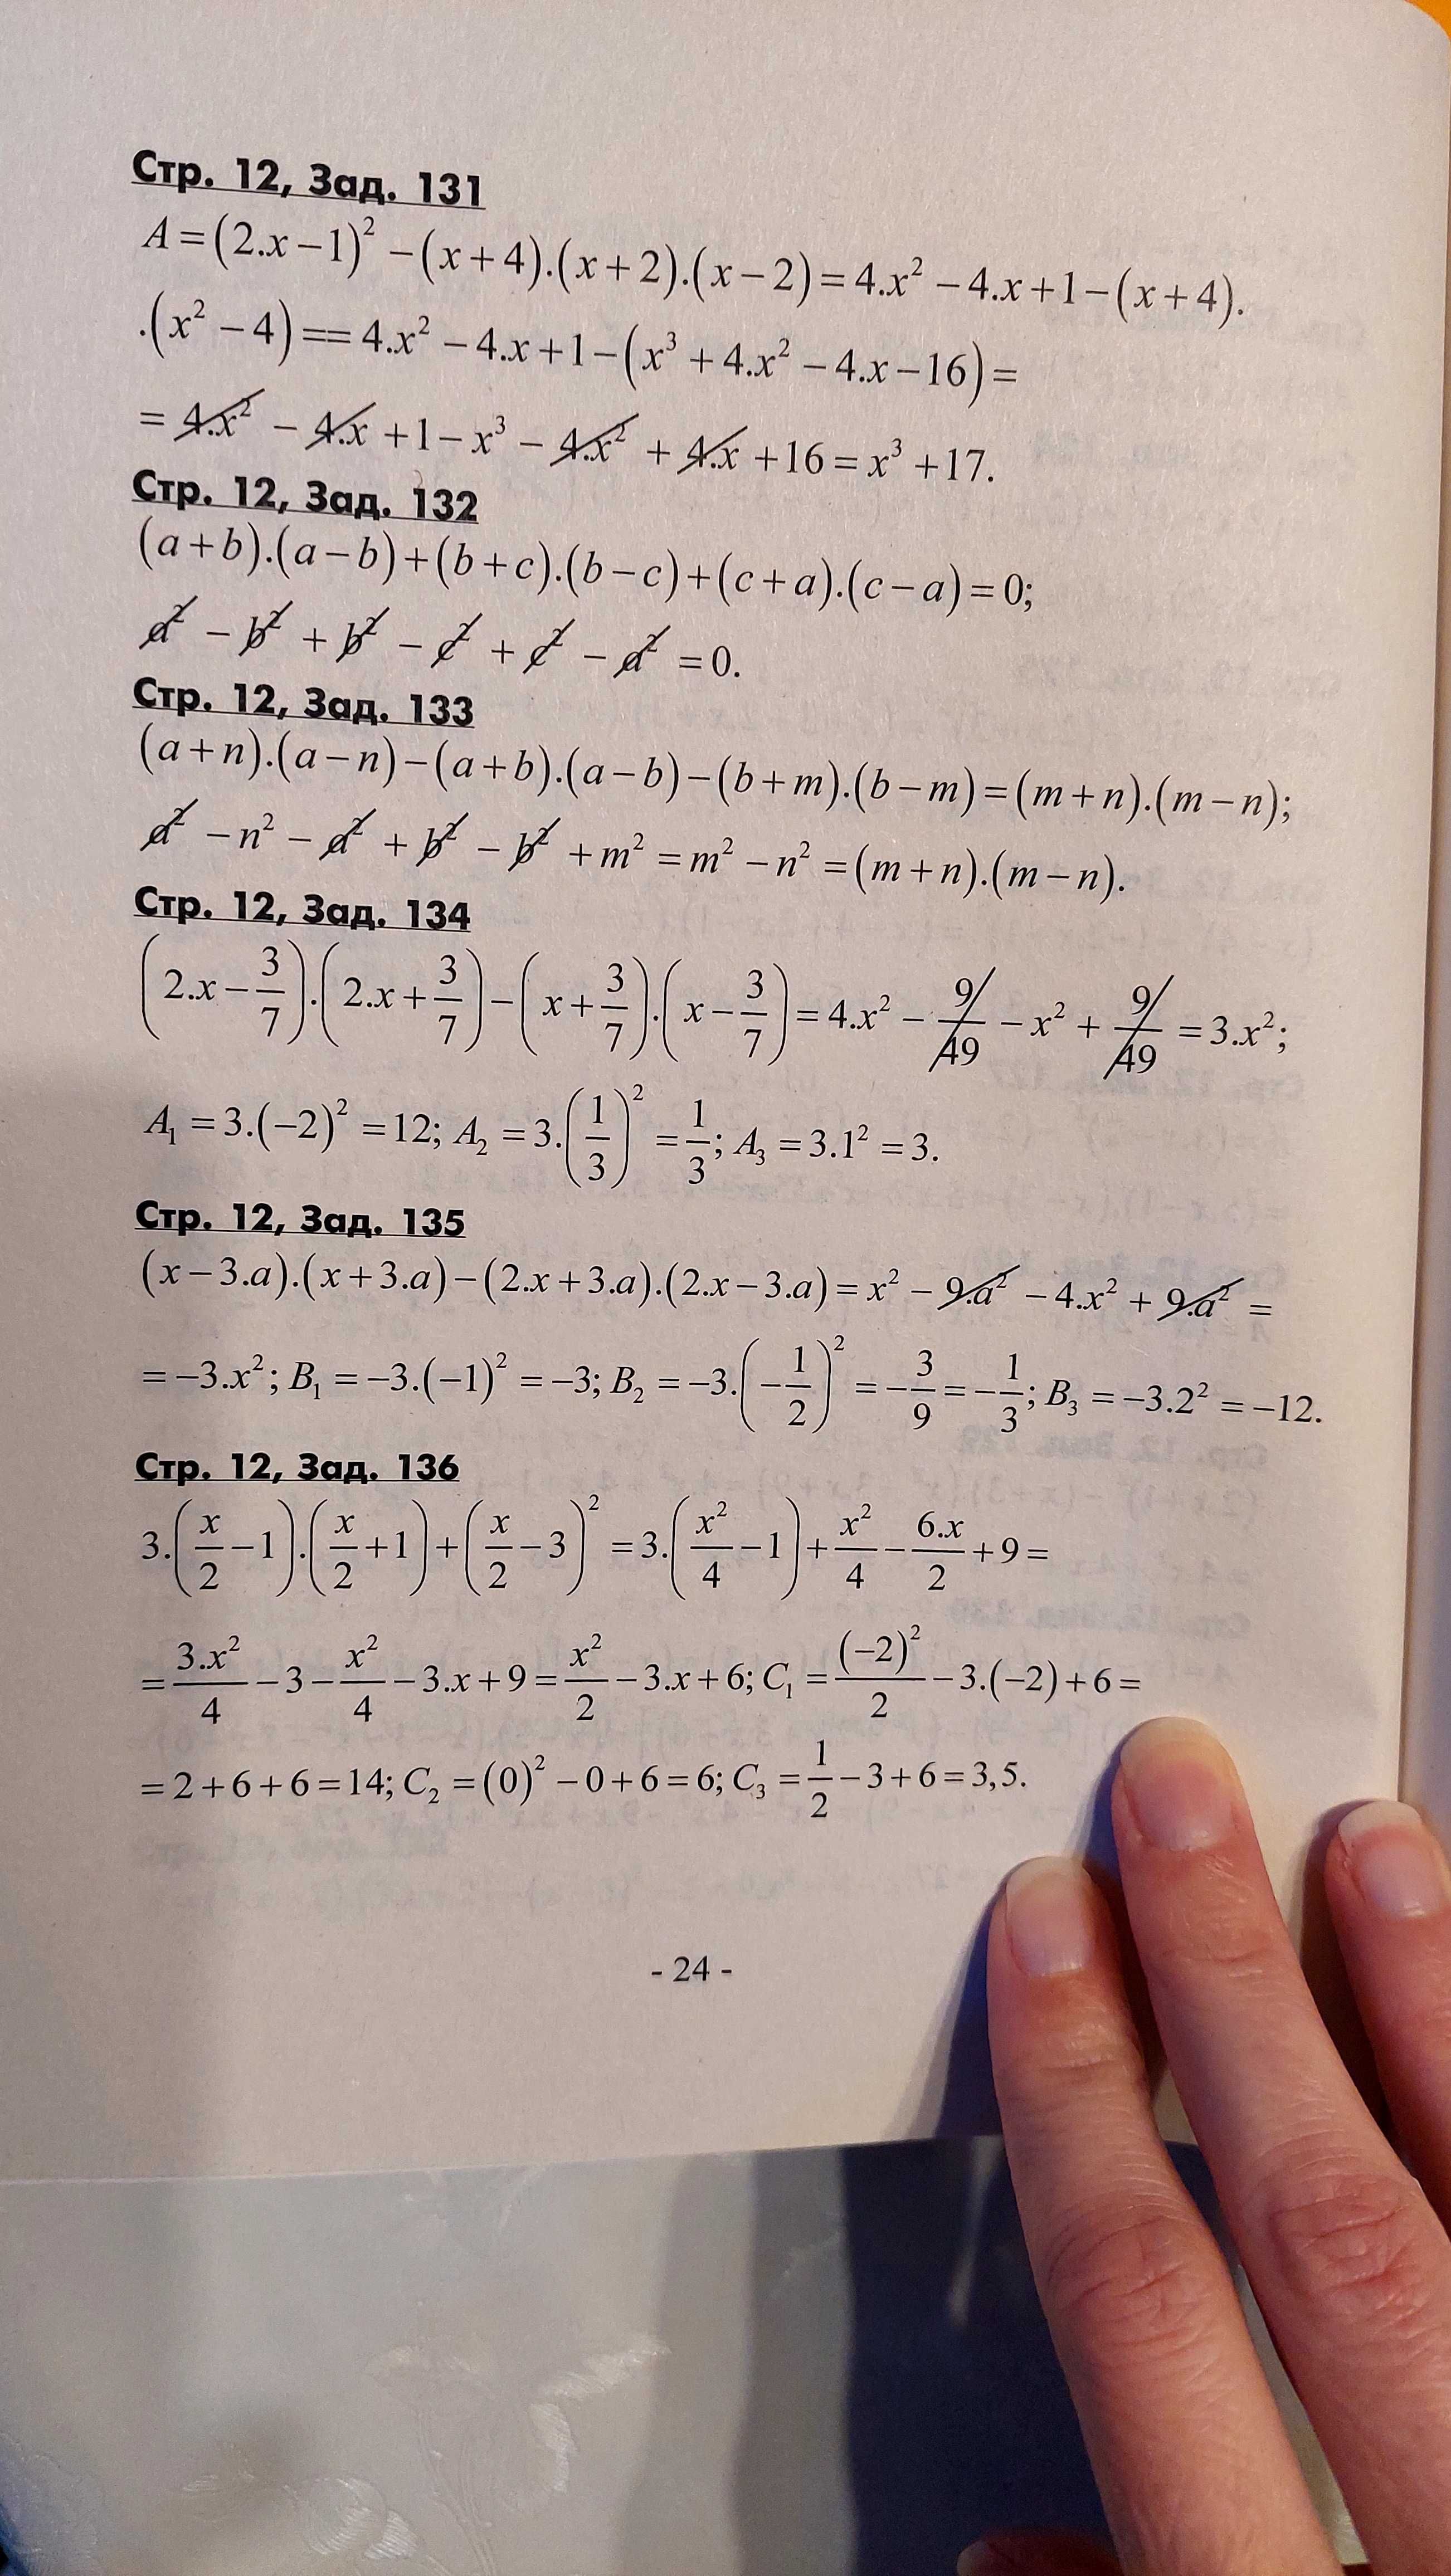 Стр. 12, Зад. 131
A = (2.x − 1)² − (x + 4).(x + 2).(x − 2) = 4.x² − 4.x + 1 − (x + 4).
.(x² − 4) == 4.x² − 4.x + 1 − (x³ + 4.x² − 4.x − 16) =
= 4.x² − 4.x + 1 − x³ − 4.x² + 4.x + 16 = x³ + 17.
Стр. 12, Зад. 132
(a + b).(a − b) + (b + c).(b − c) + (c + a).(c − a) = 0;
a² − b² + b² − c² + c² − a² = 0.
Стр. 12, Зад. 133
(a + n).(a − n) − (a + b).(a − b) − (b + m).(b − m) = (m + n).(m − n);
a² − n² − a² + b² − b² + m² = m² − n² = (m + n).(m − n).
Стр. 12, Зад. 134
(2.x − 3/7).(2.x + 3/7) − (x + 3/7).(x − 3/7) = 4.x² − 9/49 − x² + 9/49 = 3.x²;
A₁ = 3.(−2)² = 12; A₂ = 3.(1/3)² = 1/3; A₃ = 3.1² = 3.
Стр. 12, Зад. 135
(x − 3.a).(x + 3.a) − (2.x + 3.a).(2.x − 3.a) = x² − 9.a² − 4.x² + 9.a² =
= −3.x²; B₁ = −3.(−1)² = −3; B₂ = −3.(−1/2)² = −3/9 = −1/3; B₃ = −3.2² = −12.
Стр. 12, Зад. 136
3.(x/2 − 1).(x/2 + 1) + (x/2 − 3)² = 3.(x²/4 − 1) + x²/4 − 6.x/2 + 9 =
= 3.x²/4 − 3 − x²/4 − 3.x + 9 = x²/2 − 3.x + 6; C₁ = (−2)²/2 − 3.(−2) + 6 =
= 2 + 6 + 6 = 14; C₂ = (0)² − 0 + 6 = 6; C₃ = 1/2 − 3 + 6 = 3,5.
- 24 -